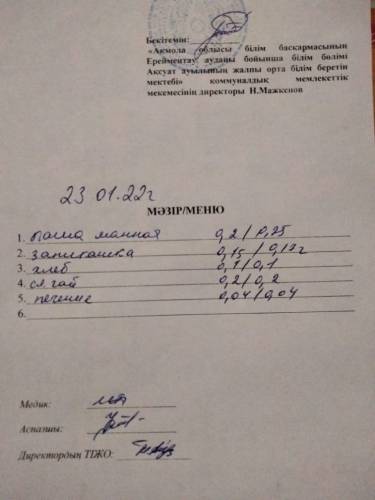 Бекітемін:
«Ақмола облысы білім басқармасының
Ерейментау ауданы бойынша білім бөлімі
Ақсуат ауылының жалпы орта білім беретін
мектебі» коммуналдық мемлекеттік
мекемесінің директоры Н.Мажкенов
23 01.22г
МӘЗІР/МЕНЮ
1. каша манная 0,2/0,25
2. запиканка 0,15/
3. хлеб 0,1/0,1
4. сл. чай 0,2/0,2
5. печение 0,04/0,04
6.
Медик:
Аспазшы:
Директордың ТІЖО: